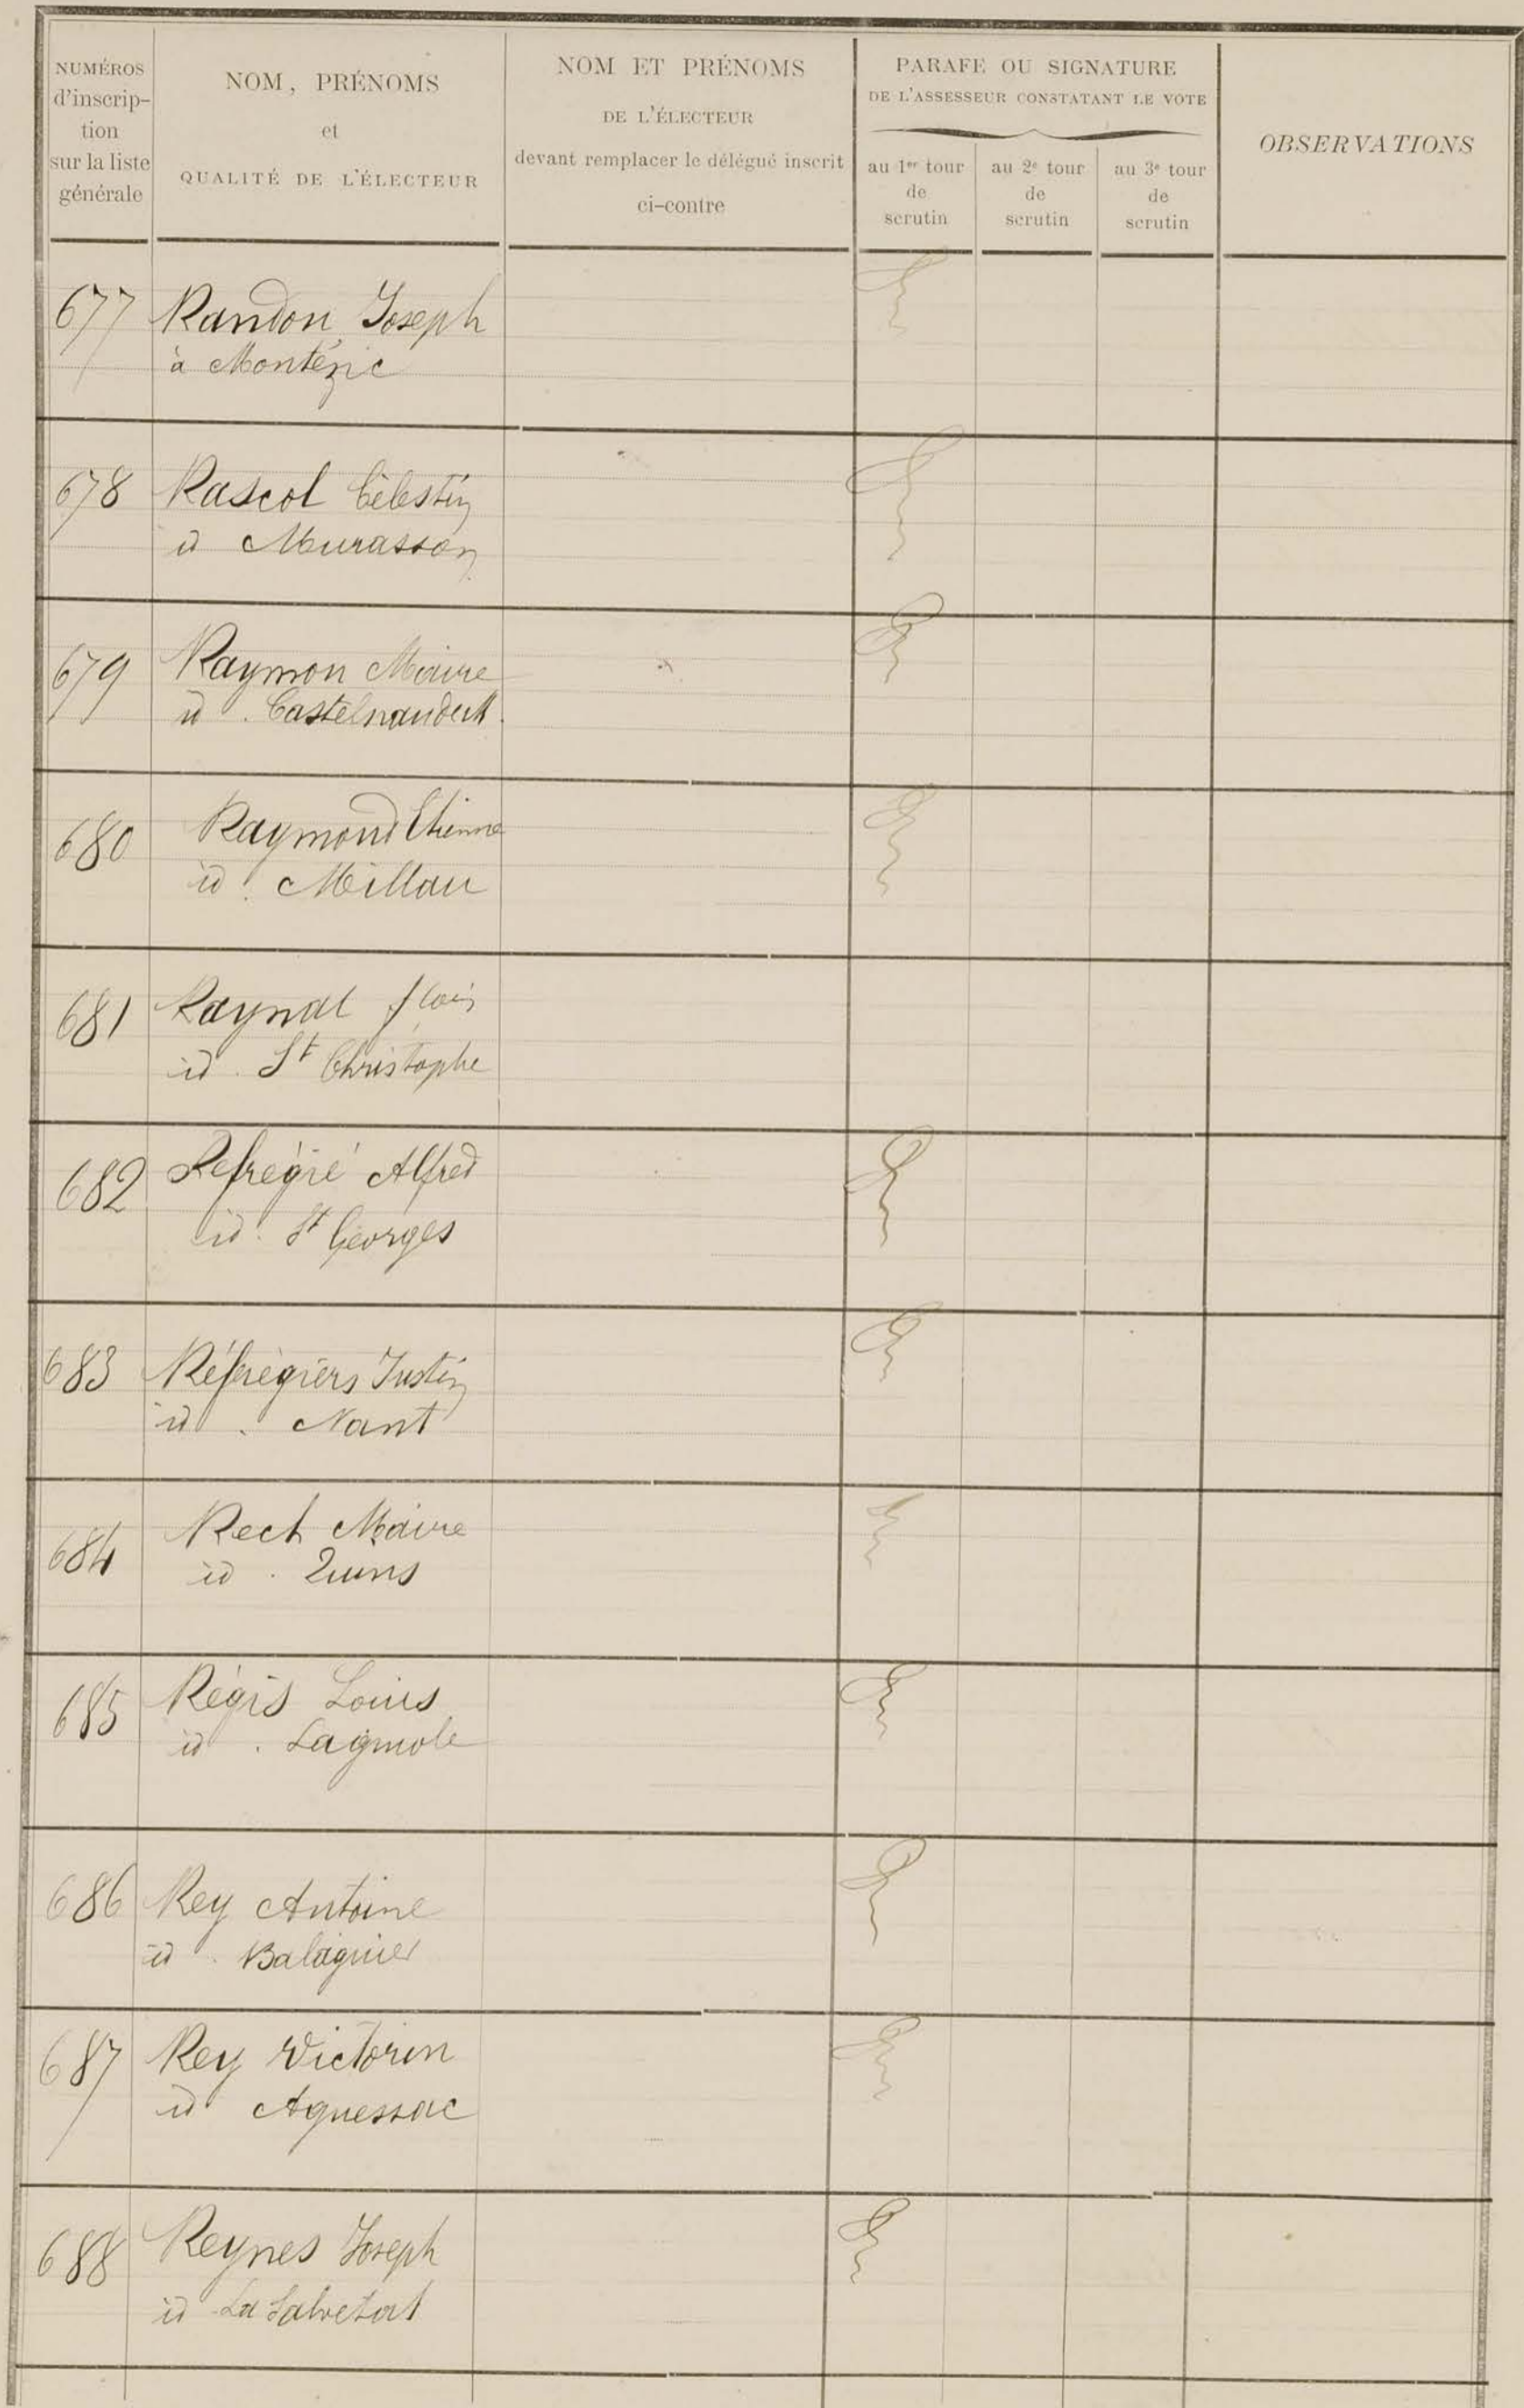 NUMÉROS
d'inscrip-
tion
sur la liste
générale
NOM, PRÉNOMS
et
QUALITÉ DE L'ÉLECTEUR
NOM ET PRÉNOMS
DE L'ÉLECTEUR
devant remplacer le délégué inscrit
ci-contre
PARAFE OU SIGNATURE
DE L'ASSESSEUR CONSTATANT LE VOTE
au 1er tour
de
scrutin
au 2e tour
de
scrutin
au 3e tour
de
scrutin
OBSERVATIONS
677 Randon Joseph
à Montézic
678 Rascol Célestin
id Murasson
679 Raymon Maire
id. Castelnau
680 Raymond Etienne
id. Millau
681 Raynal
id. St Christophe
682 Refrégié Alfred
id. St Georges
683 Réfrégiers Justin
id. Nant
684 Rech Maire
id. Quins
685 Régis Louis
id. Laguiole
686 Rey Antoine
id. Balaguier
687 Rey Victorin
id Aguessac
688 Reynes Joseph
id La Salvetat